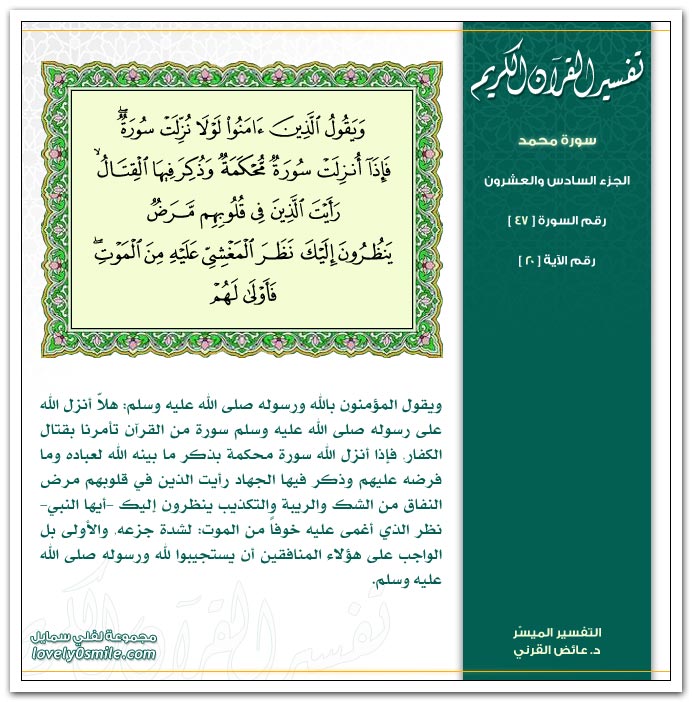 تفسير القرآن الكريم
سورة محمد
الجزء السادس والعشرون
رقم السورة [ ٤٧ ]
رقم الآية [ ٢٠ ]
وَيَقُولُ ٱلَّذِينَ ءَامَنُوا۟ لَوْلَا نُزِّلَتْ سُورَةٌۖ
فَإِذَآ أُنزِلَتْ سُورَةٌ مُّحْكَمَةٌ وَذُكِرَ فِيهَا ٱلْقِتَالُۙ
رَأَيْتَ ٱلَّذِينَ فِى قُلُوبِهِم مَّرَضٌ
يَنظُرُونَ إِلَيْكَ نَظَرَ ٱلْمَغْشِىِّ عَلَيْهِ مِنَ ٱلْمَوْتِۖ
فَأَوْلَىٰ لَهُمْ
ويقول المؤمنون بالله ورسوله صلى الله عليه وسلم: هلاّ أنزل الله
على رسوله صلى الله عليه وسلم سورة من القرآن تأمرنا بقتال
الكفار, فإذا أنزل الله سورة محكمة بذكر ما بينه الله لعباده وما
فرضه عليهم وذكر فيها الجهاد رأيت الذين في قلوبهم مرض
النفاق من الشك والريبة والتكذيب ينظرون إليك -أيها النبي-
نظر الذي أغمى عليه خوفاً من الموت؛ لشدة جزعه, والأولى بل
الواجب على هؤلاء المنافقين أن يستجيبوا لله ورسوله صلى الله
عليه وسلم.
تفسير القرآن الكريم
التفسير الميسّر
د. عائض القرني
مجموعة لفلي سمايل
lovely0smile.com